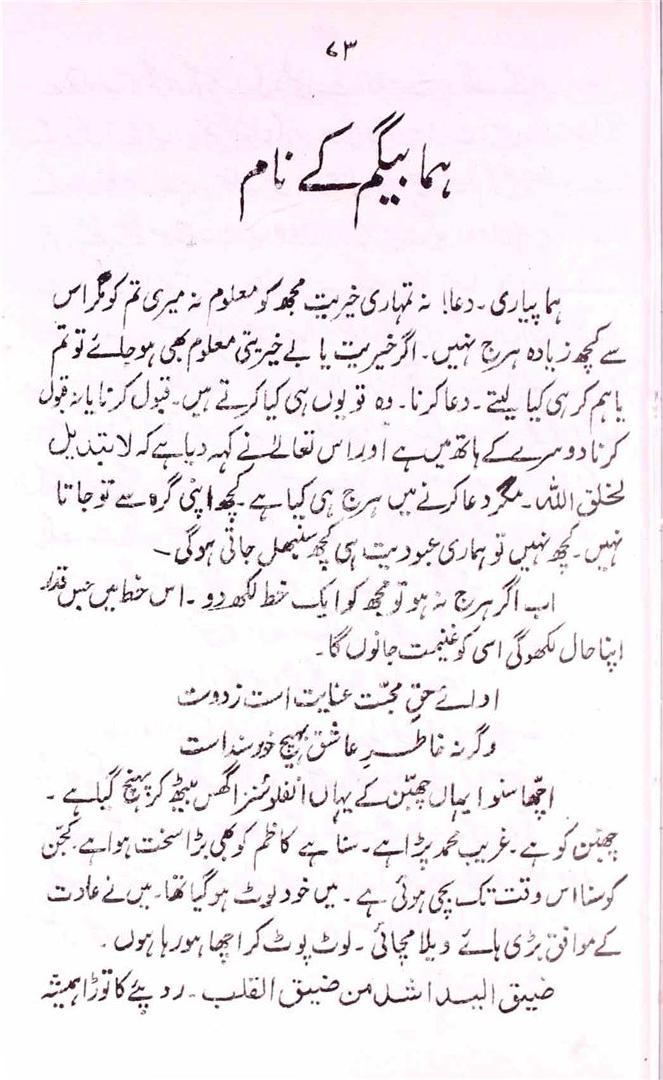 ۷۳
ہما بیگم کے نام
ہما پیاری۔ دعا! نہ تمہاری خیریت مجھ کو معلوم نہ میری تم کو مگر اس
سے کچھ زیادہ ہرج نہیں۔ اگر خیریت یا بے خیریتی معلوم بھی ہو جائے تو تم
یا ہم کر ہی کیا لیتے۔ دعا کرنا۔ وہ تو یوں ہی کیا کرتے ہیں۔ قبول کرنا یا نہ قبول
کرنا دوسرے کے ہاتھ میں ہے اور اس تعالےٰ نے کہہ دیا ہے کہ لا تبدیل
لخلق اللہ۔ مگر دعا کرنے میں ہرج ہی کیا ہے۔ کچھ اپنی گرہ سے تو جاتا
نہیں۔ کچھ نہیں تو ہماری عبودیت ہی کچھ سنبھل جاتی ہوگی۔
اب اگر ہرج نہ ہو تو مجھ کو ایک خط لکھ دو۔ اس خط میں جس قدر
اپنا حال لکھوگی اسی کو غنیمت جانوں گا۔
ادائے حقِ محبّت عنایت است ز دوست
وگرنہ خاطرِ عاشق بہیچ خورسند است
اچّھا سنو! یہاں چھبّن کے یہاں انفلوئنزا گھس بیٹھ کر پہنچ گیا ہے۔
چھبّن کو ہے۔ غریب محمد پڑا ہے۔ سنا ہے کاظم کو بھی بڑا سخت ہوا ہے۔ کجّن
کو سنا اس وقت تک بچی ہوئی ہے۔ میں خود لوٹ ہو گیا تھا۔ میں نے عادت
کے موافق بڑی ہائے ویلا مچائی۔ لوٹ پوٹ کر اچھا ہو رہا ہوں۔
ضیق الید اشد من ضیق القلب۔ روپئے کا توڑا ہمیشہ